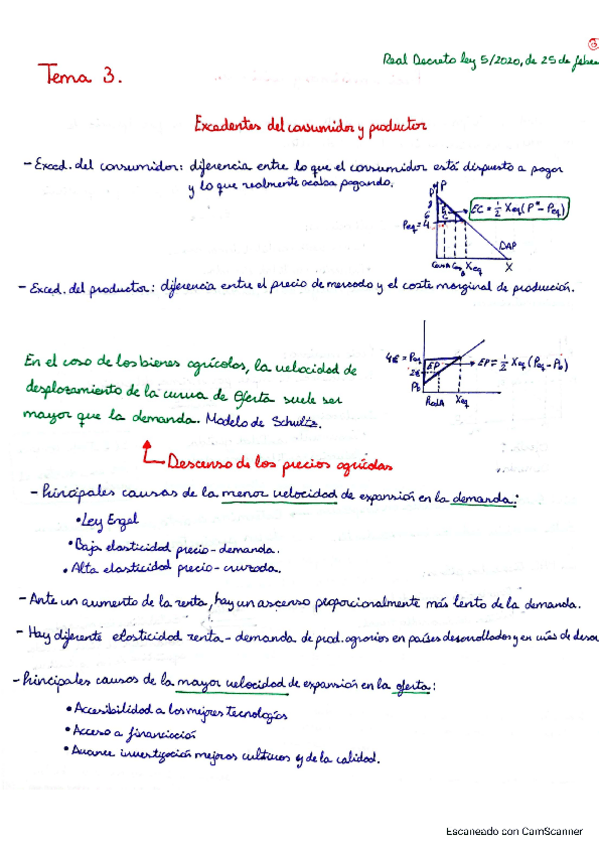 Real Decreto ley 5/2020, de 25 de febre
Tema 3.
Excedentes del consumidor y productor
- Exced. del consumidor: diferencia entre lo que el consumidor está dispuesto a pagar
y lo que realmente acaba pagando.
P
EC = 1/2 Xeq (P* - Peq)
Peq = 4
DAP
Xeq
X
- Exced. del productor: diferencia entre el precio de mercado y el coste marginal de producción.
4€ = Peq
EP
EP = 1/2 Xeq (Peq - Po)
2€
Po
Xeq
En el caso de los bienes agrícolas, la velocidad de
desplazamiento de la curva de Oferta suele ser
mayor que la demanda. Modelo de Schultz.
Descenso de los precios agrícolas
- Principales causas de la menor velocidad de expansión en la demanda:
• Ley Engel
• Baja elasticidad precio - demanda.
• Alta elasticidad precio - cruzada.
- Ante un aumento de la renta, hay un ascenso proporcionalmente más lento de la demanda.
- Hay diferente elasticidad renta - demanda de prod. agrarios en países desarrollados y en vías de desar
- Principales causas de la mayor velocidad de expansión en la oferta:
• Accesibilidad a las mejores tecnologías
• Acceso a financiación
• Avance investigación mejoras cultivos y de la calidad.
Escaneado con CamScanner